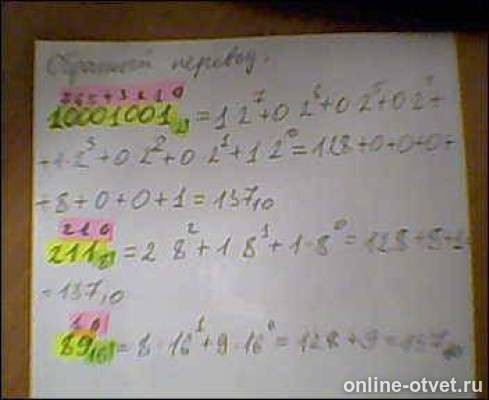 Обратный перевод.
7 6 5 4 3 2 1 0
10001001₂ = 1 2⁷ + 0 2⁶ + 0 2⁵ + 0 2⁴ +
+ 1 2³ + 0 2² + 0 2¹ + 1 2⁰ = 128 + 0 + 0 + 0 +
+ 8 + 0 + 0 + 1 = 137₁₀
2 1 0
211₈ = 2 8² + 1 8¹ + 1 · 8⁰ = 128 + 8 + 1 =
= 137₁₀
1 0
89₁₆ = 8 · 16¹ + 9 · 16⁰ = 128 + 9 = 137₁₀
online-otvet.ru